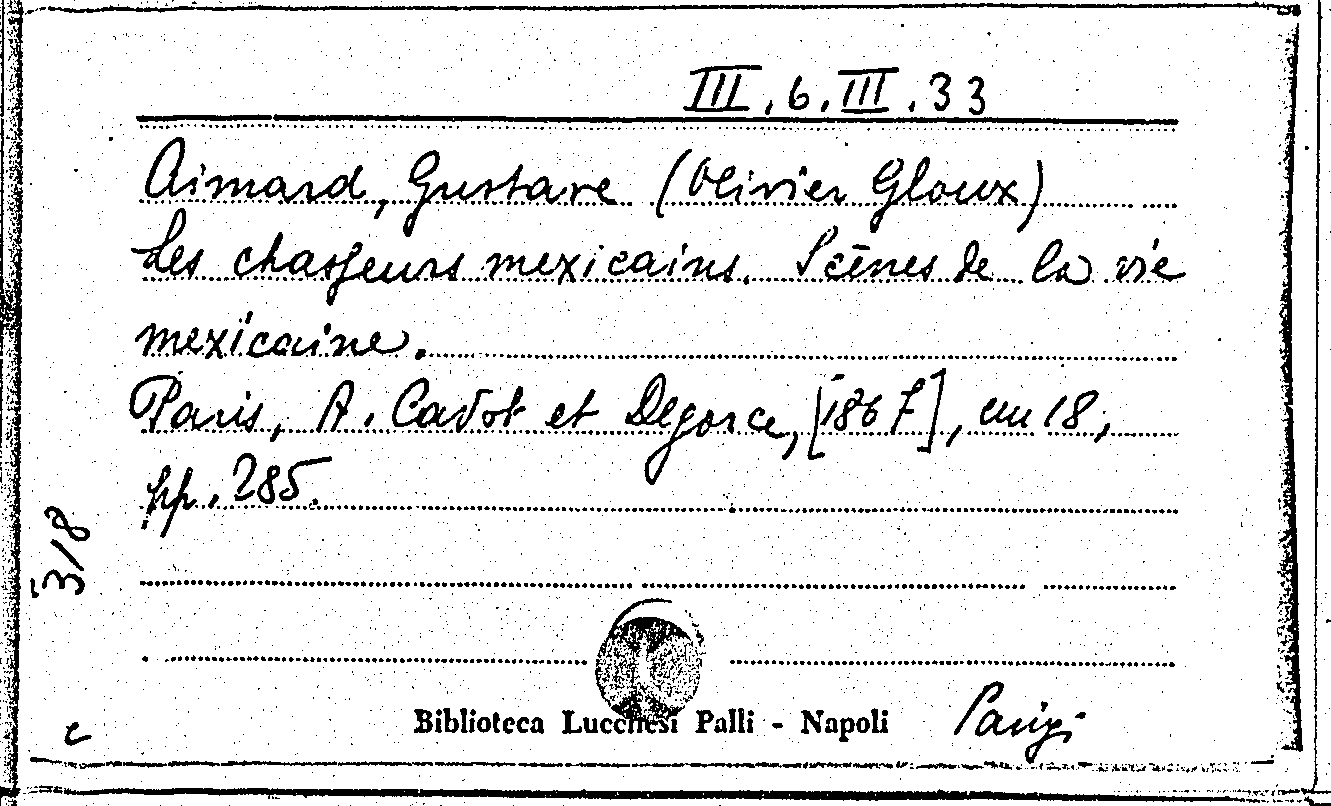 III.6.III.33
Aimard, Gustave (Olivier Gloux)
Les chasseurs mexicains. Scènes de la vie
mexicaine.
Paris, A. Cadot et Degorce, [1867], in 18,
pp. 285.
318
c
Biblioteca Lucchesi Palli - Napoli
Parigi